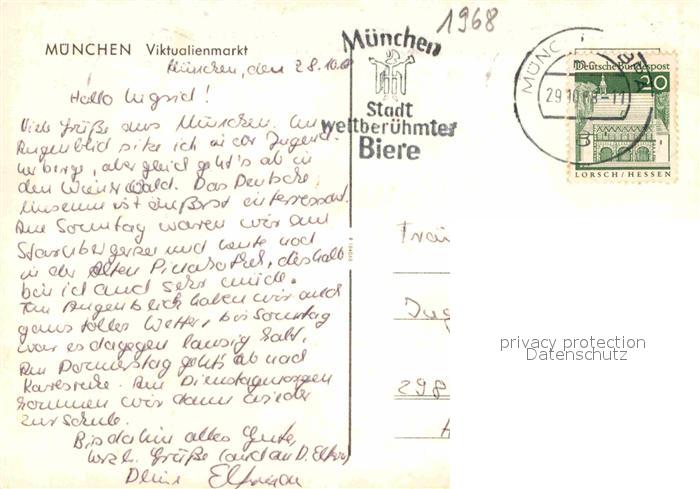 1968
MÜNCHEN Viktualienmarkt
München
Stadt
weltberühmter
Biere
MÜNCH
29.10.68-11
B
Deutsche Bundespost
20
LORSCH/HESSEN
München, den 28.10.
Hallo Ingrid!
Viele Grüße aus München. Im
Augenblick sitze ich in der Jugend-
herberge, aber gleich geht's ab in
den Wienerwald. Das Deutsche
Museum ist äußerst interessant.
Am Sonntag waren wir am
Starnbergersee und heute noch
in der Alten Pinakothek, deshalb
bin ich auch sehr müde.
Im Augenblick haben wir auch
ganz tolles Wetter, bis Sonntag
war es dagegen lausig kalt.
Am Donnerstag geht's ab nach
Karlsruhe. Am Dienstagmorgen
kommen wir dann wieder
zur Schule.
Bis dahin alles Gute,
herzl. Grüße (auch an D. Eltern)
Deine
298
privacy protection
Datenschutz